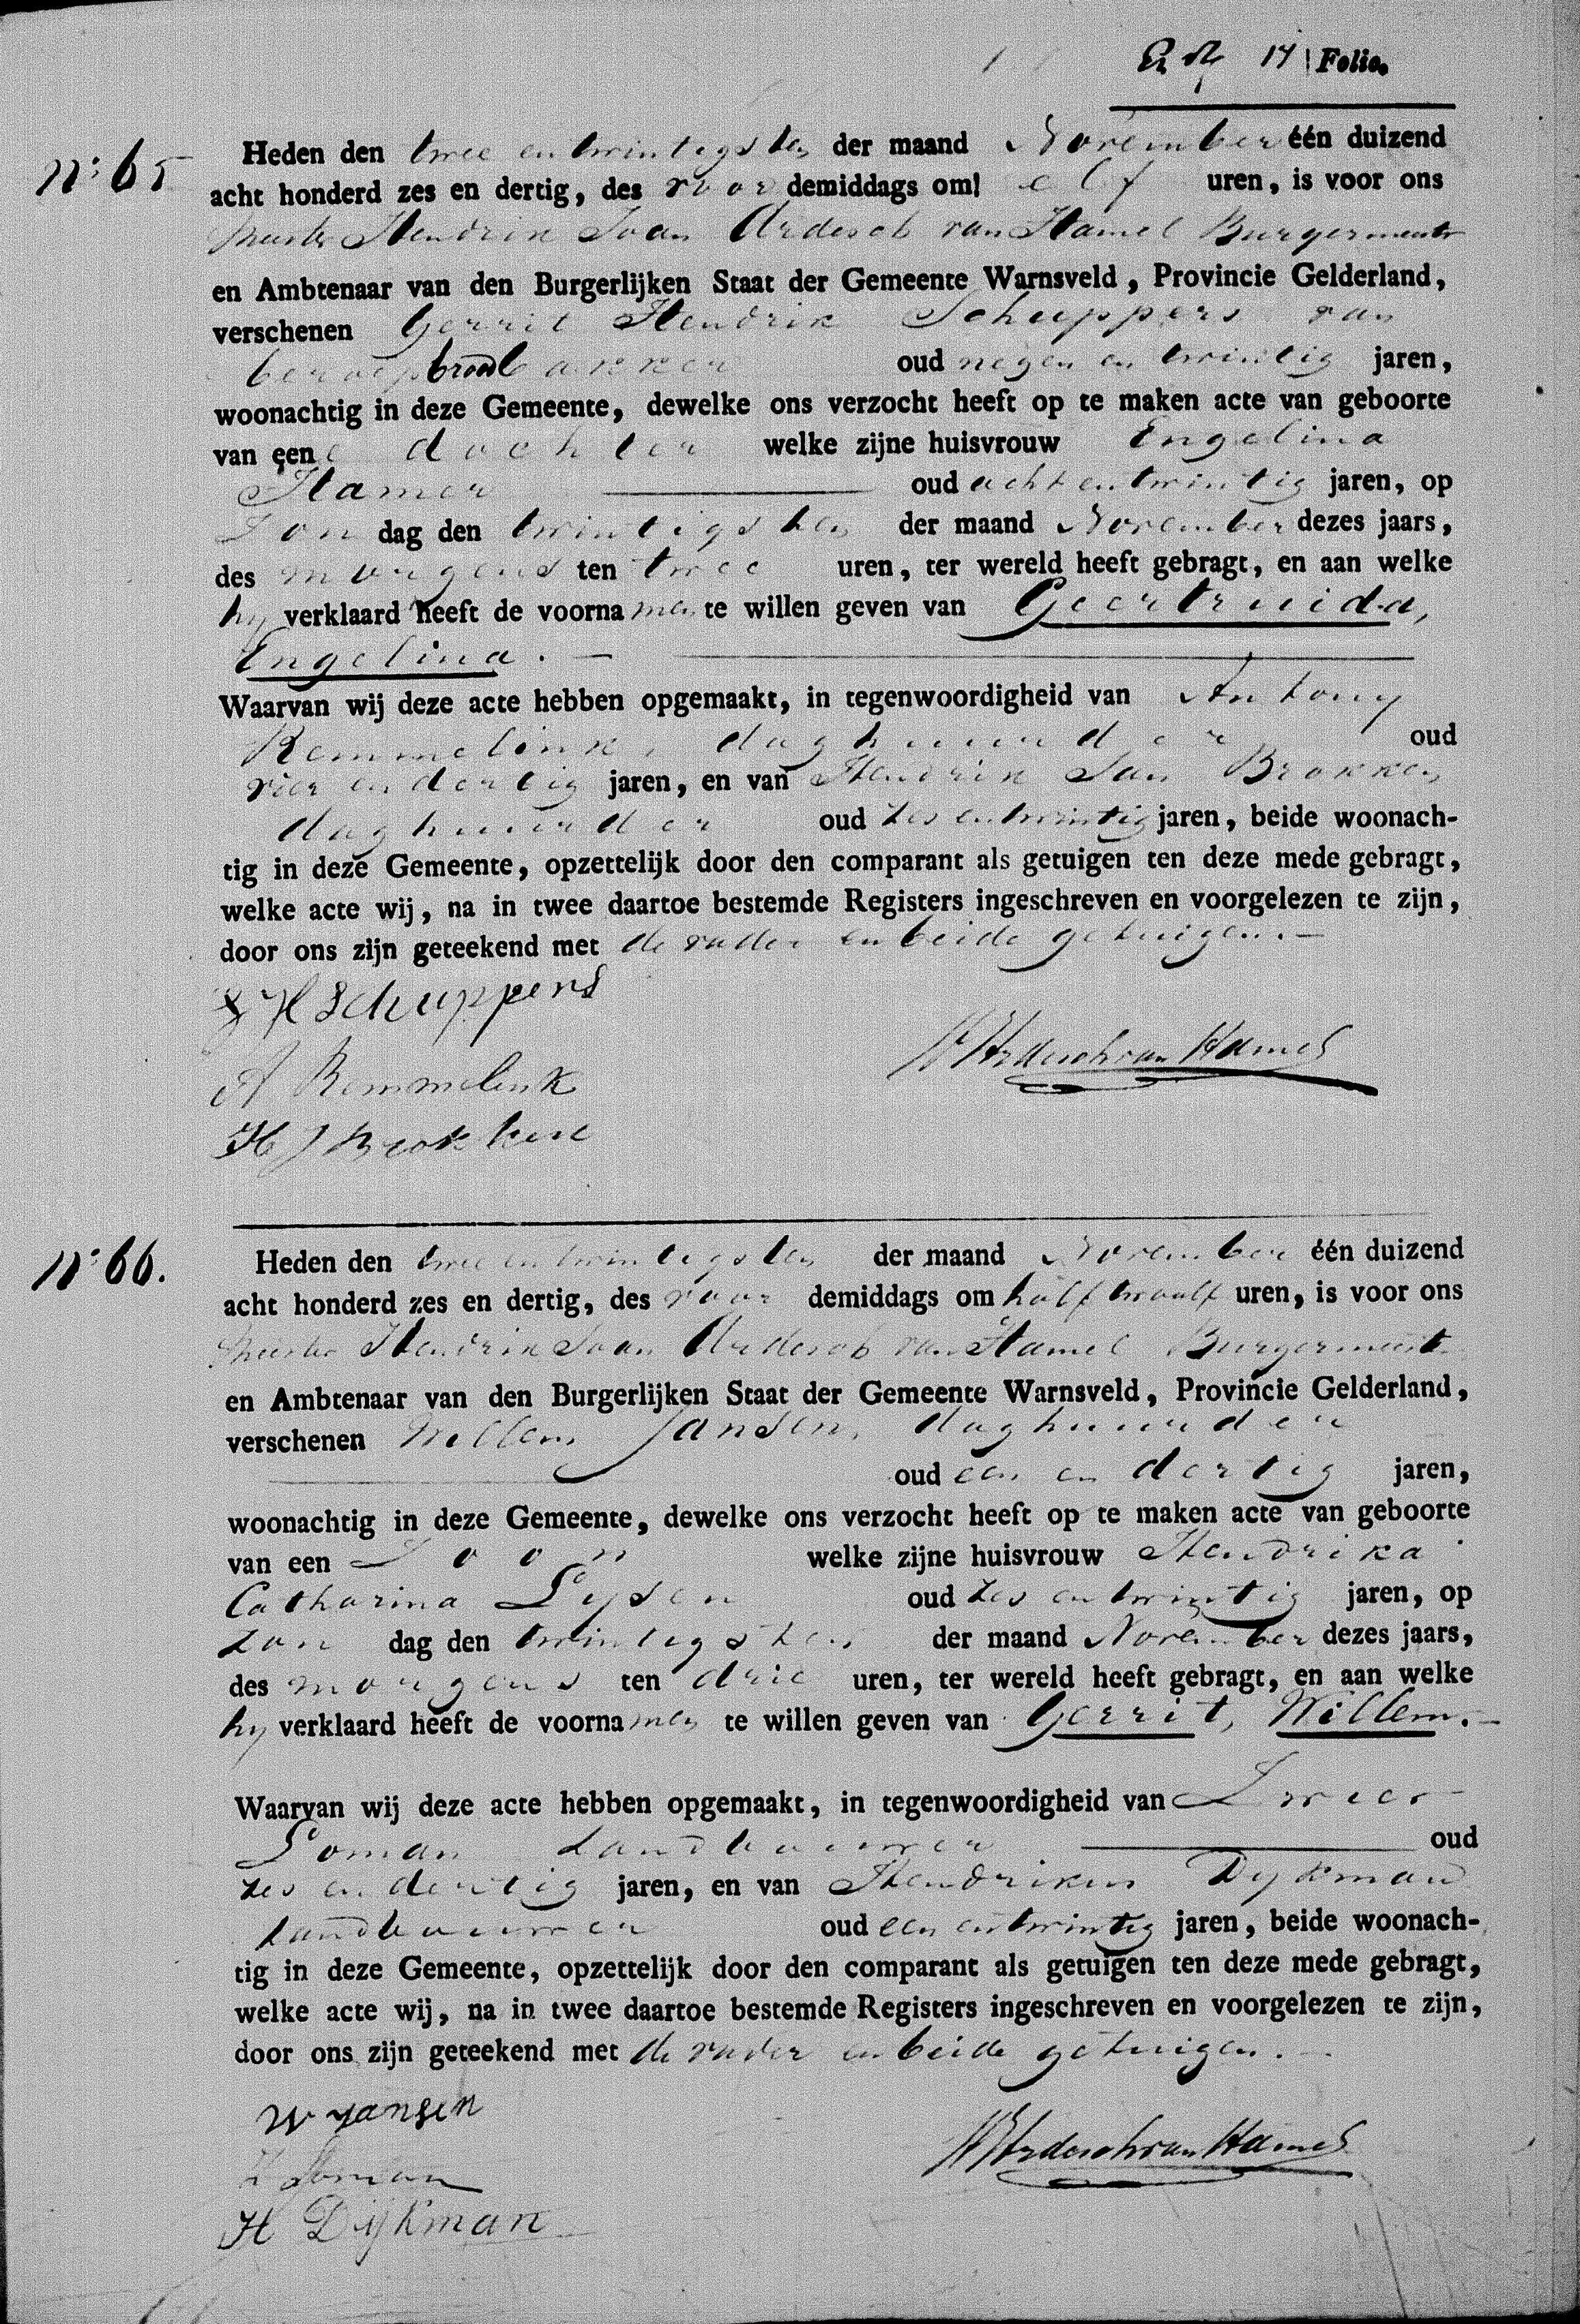 17 Folio.
N: 65
Heden den twee en twintigsten der maand November één duizend
acht honderd zes en dertig, des voor demiddags om elf uren, is voor ons
Meester Hendrik Joan Ardesch van Hamel Burgermeester
en Ambtenaar van den Burgerlijken Staat der Gemeente Warnsveld, Provincie Gelderland,
verschenen Gerrit Hendrik Schuppers van
beroep broodbakker oud negen en twintig jaren,
woonachtig in deze Gemeente, dewelke ons verzocht heeft op te maken acte van geboorte
van eene dochter welke zijne huisvrouw Engelina
Hamer oud acht en twintig jaren, op
Zon dag den twintigsten der maand November dezes jaars,
des morgens ten twee uren, ter wereld heeft gebragt, en aan welke
hy verklaard heeft de voornamen te willen geven van Geertruida,
Engelina.
Waarvan wij deze acte hebben opgemaakt, in tegenwoordigheid van Antony
Remmelink, daghuurder oud
vier en dertig jaren, en van Hendrik Jan Brokken
daghuurder oud zes en twintig jaren, beide woonach-
tig in deze Gemeente, opzettelijk door den comparant als getuigen ten deze mede gebragt,
welke acte wij, na in twee daartoe bestemde Registers ingeschreven en voorgelezen te zijn,
door ons zijn geteekend met de vader en beide getuigen.
G H Schuppers
HJ Ardesch van Hamel
A Remmelink
H J Brokken
N: 66.
Heden den twee en twintigsten der maand November één duizend
acht honderd zes en dertig, des voor demiddags om half twaalf uren, is voor ons
Meester Hendrik Joan Ardesch van Hamel Burgermeest
en Ambtenaar van den Burgerlijken Staat der Gemeente Warnsveld, Provincie Gelderland,
verschenen Willem Jansen, daghuurder
oud een en dertig jaren,
woonachtig in deze Gemeente, dewelke ons verzocht heeft op te maken acte van geboorte
van een Zoon welke zijne huisvrouw Hendrika
Catharina Lysen oud zes en twintig jaren, op
Zon dag den twintigsten der maand November dezes jaars,
des morgens ten drie uren, ter wereld heeft gebragt, en aan welke
hy verklaard heeft de voornamen te willen geven van Gerrit, Willem.
Waarvan wij deze acte hebben opgemaakt, in tegenwoordigheid van Zweer
Loman landbouwer oud
zes en dertig jaren, en van Hendrikus Dykman
landbouwer oud een en twintig jaren, beide woonach-
tig in deze Gemeente, opzettelijk door den comparant als getuigen ten deze mede gebragt,
welke acte wij, na in twee daartoe bestemde Registers ingeschreven en voorgelezen te zijn,
door ons zijn geteekend met de vader en beide getuigen.
W Jansen
HJ Ardesch van Hamel
Z Loman
H Dijkman